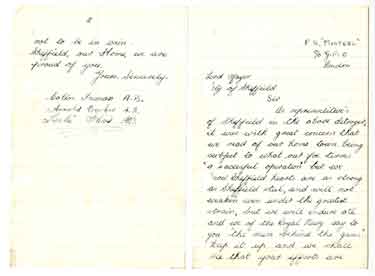 P.S. "Fosters"
℅ G.P.O
London
Lord Mayor
City of Sheffield
Sir
As representatives
of Sheffield in the above
it was with great concern that
we read of our home town being
subject to what our foe terms
"a successful operation" but we
Sheffield hearts are as strong
as Sheffield steel, and will not
weaken even under the greatest
strain, but we will endure
and we of the Royal Navy say to
you "the men behind the guns"
Keep it up and we shall
see that your efforts are
2
not to be in vain.
Sheffield, our Home, we are
proud of you.
Yours Sincerely.
A.B.
Arnold A.B.